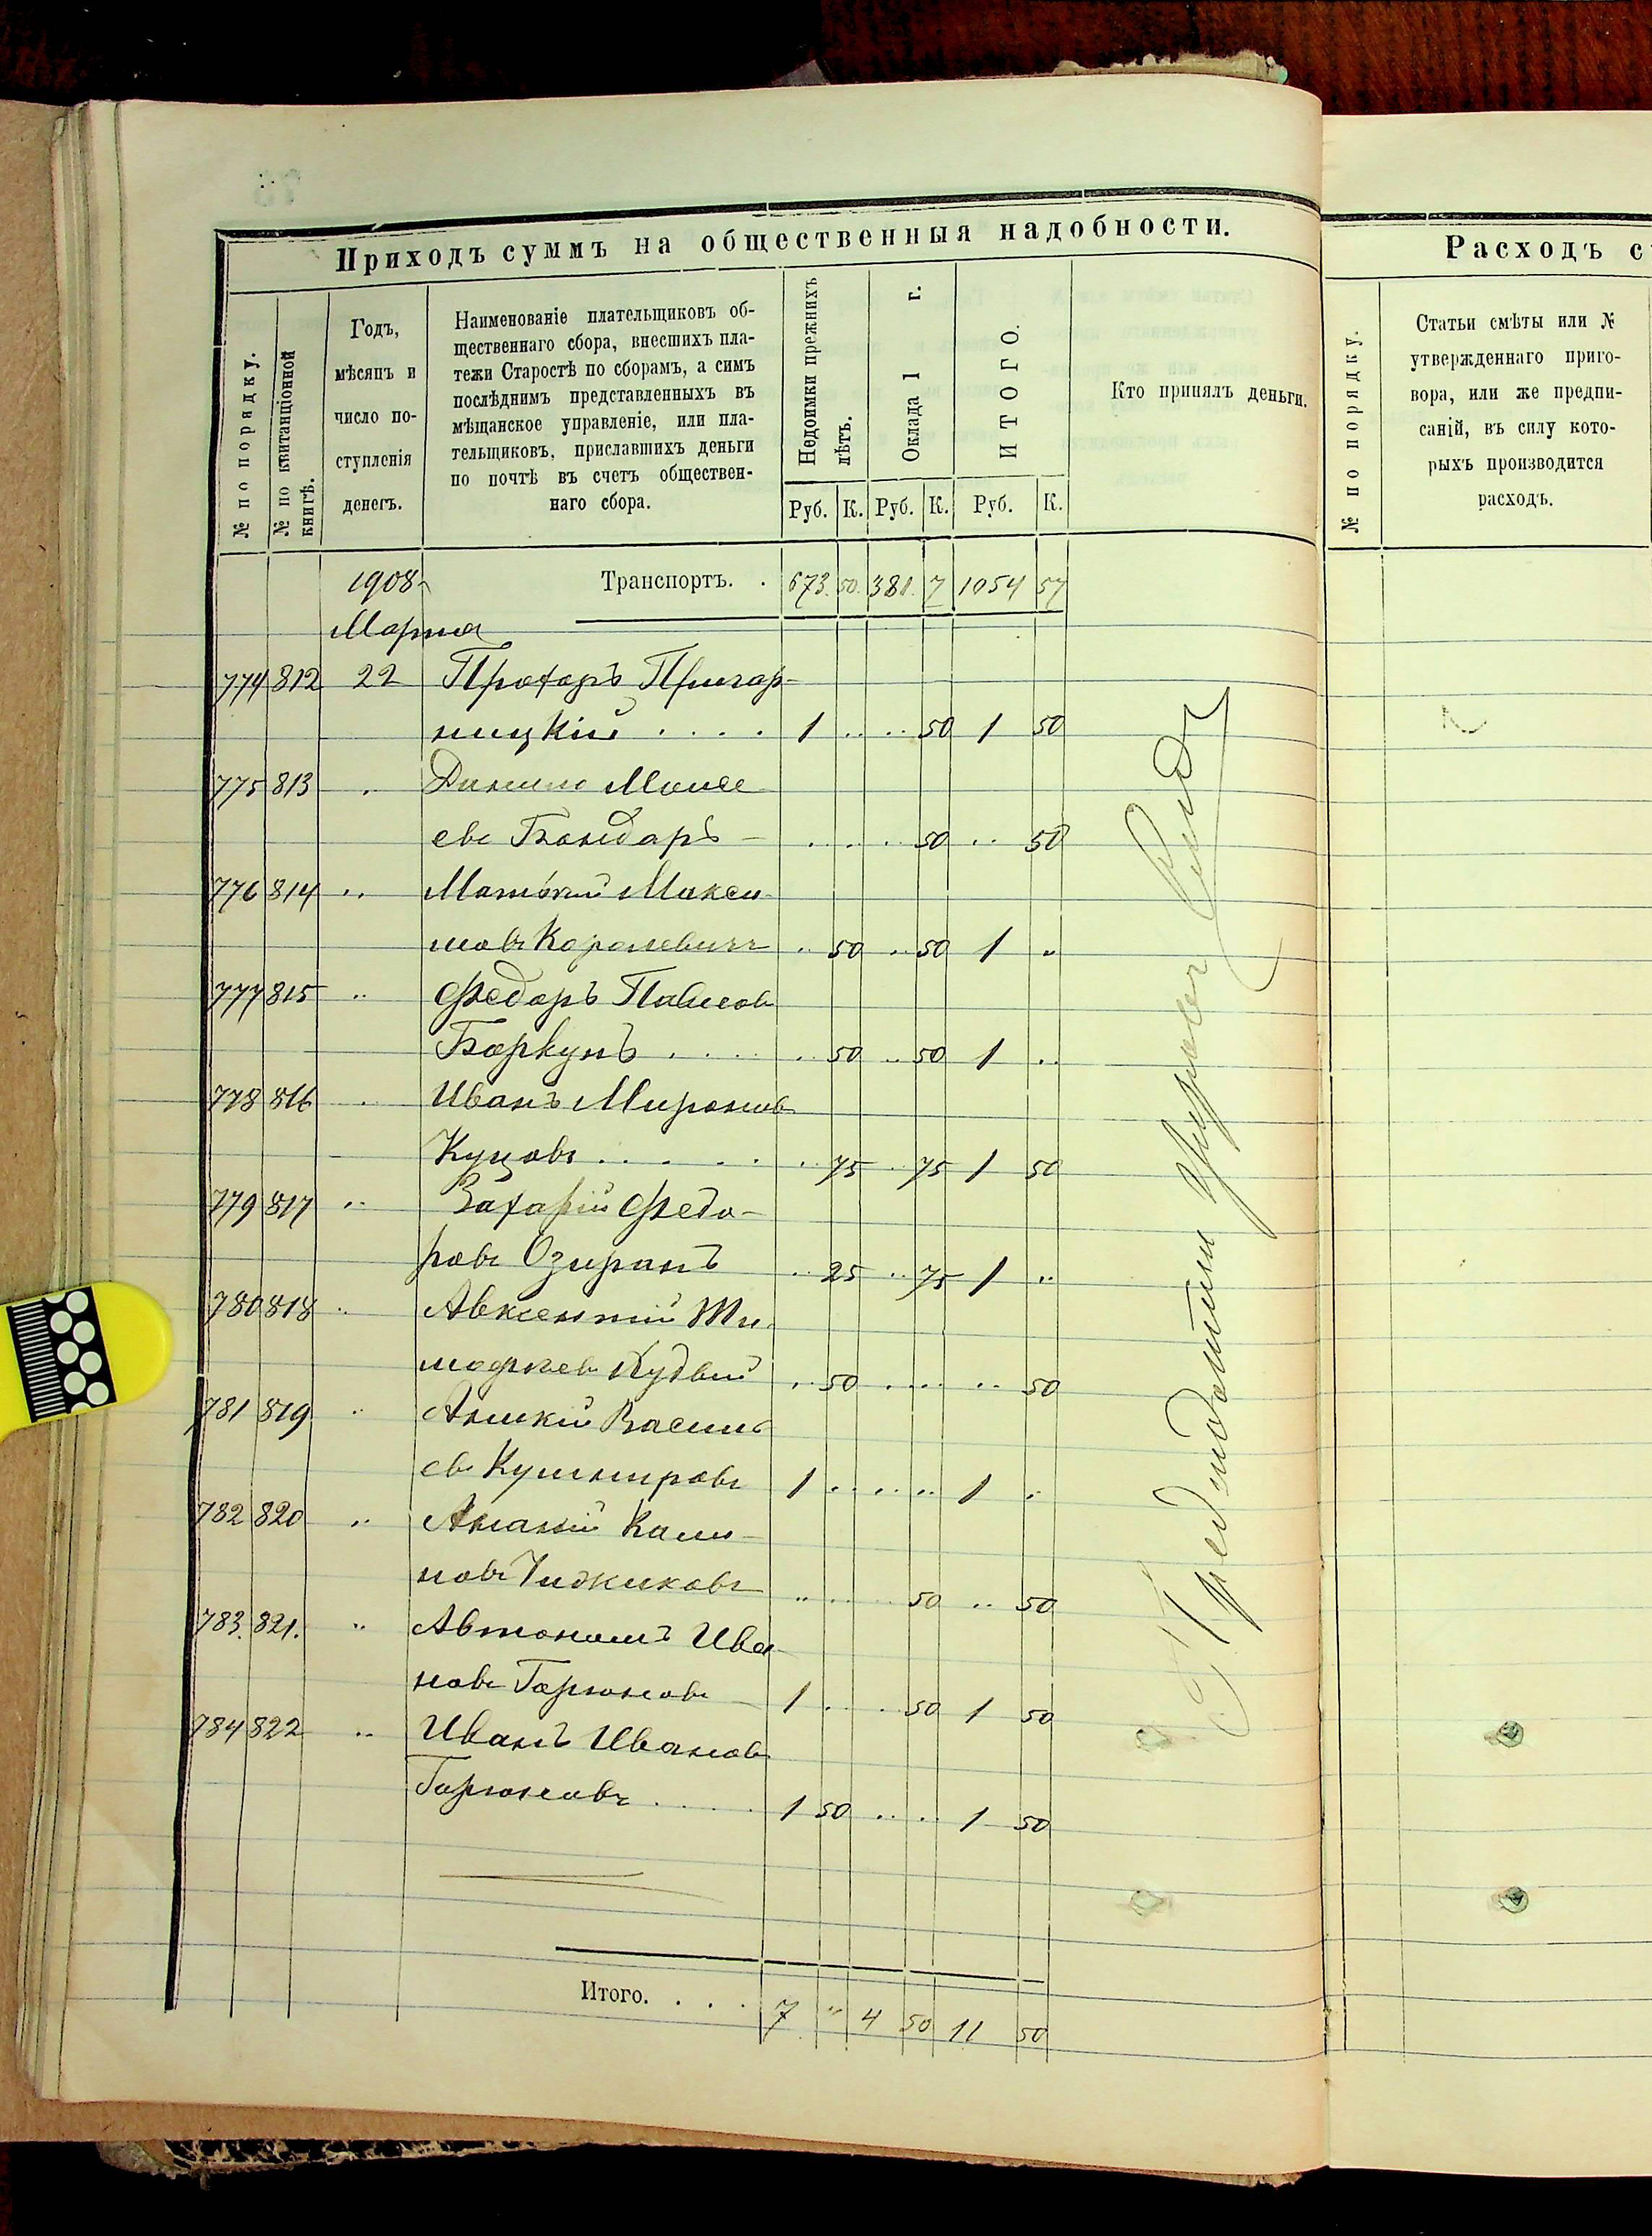 Приходъ суммъ на общественныя надобности.
№ по порядку.
№ по квитанціонной книгѣ.
Годъ,
мѣсяцъ и
число по-
ступленія
денегъ.
Наименованіе плательщиковъ об-
щественнаго сбора, внесшихъ пла-
тежи Старостѣ по сборамъ, а симъ
послѣднимъ представленныхъ въ
мѣщанское управленіе, или пла-
тельщиковъ, приславшихъ деньги
по почтѣ въ счетъ обществен-
наго сбора.
Недоимки прежнихъ лѣтъ.
Оклада 1 г.
ИТОГО.
Руб. К. Руб. К. Руб. К.
Кто принялъ деньги.
1908 Транспортъ. . 673. 50. 381. 7 1054 57
Марта
774 812 22 Прохоръ Пригар-
ницкій . . . . 1 .. .. 50 1 50
775 813 .. Данило Моисе
евъ Бондарь — .. .. .. 50 .. 50
776 814 .. Матѳей Макси-
мовъ Королевичъ .. 50 .. 50 1 ..
777 815 .. Федоръ Павлов
Боркунъ . . . . .. 50 .. 50 1 ..
778 816 .. Иванъ Миронов
Куцовъ . . . . .. 75 .. 75 1 50
779 817 .. Захарій Федо-
ровъ Озиранъ .. 25 .. 75 1 ..
780 818 .. Авксентій Ти-
мофеев .. 50 .. .. .. 50
781 819 .. Аникій Василь
ев Кушнировъ 1 .. .. .. 1 ..
782 820 .. Ананій Кали-
новъ .. .. .. 50 .. 50
783. 821. .. Автономъ Ива
новъ Горюновъ 1 .. .. 50 1 50
784 822 .. Иванъ Иванов
Горюновъ . . . . 1 50 .. .. 1 50
Итого. . . . 7 " 4 50 11 50
Расходъ с
№ по порядку.
Статьи смѣты или №
утвержденнаго приго-
вора, или же предпи-
саній, въ силу кото-
рыхъ производится
расходъ.